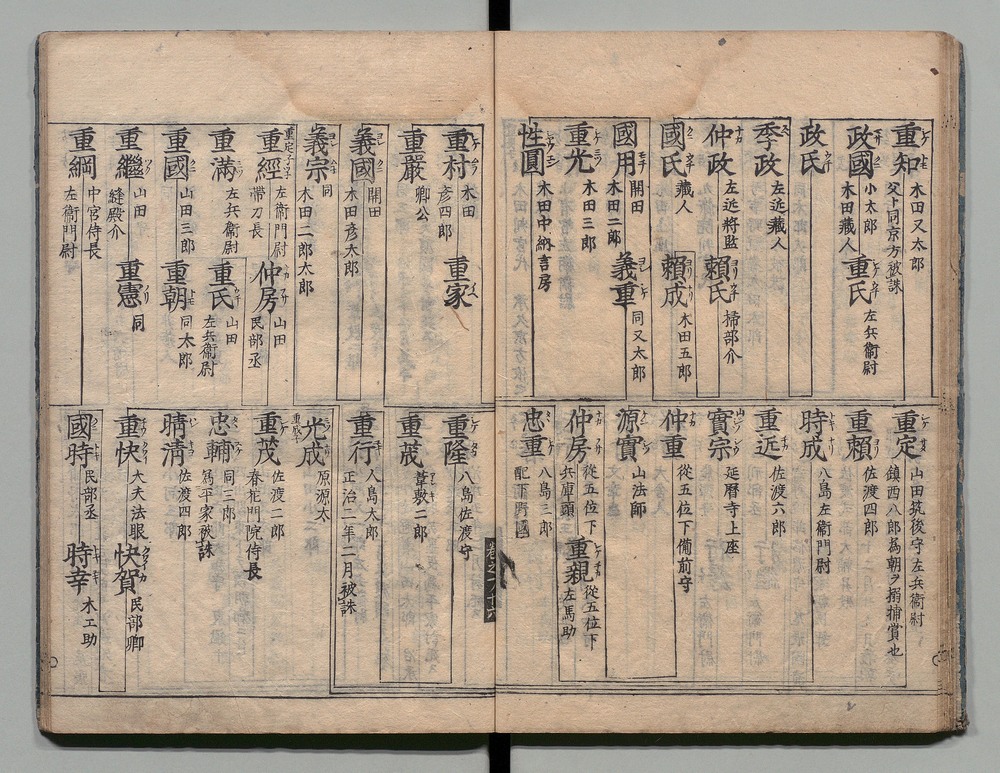 重知 木田又太郎
父ト同京方被誅
政國 小太郎
木田藏人
重氏 左兵衞尉
政氏
季政 左近藏人
仲政 左近將監
賴氏 掃部介
國氏 藏人
賴成 木田五郎
國用 開田
木田二郎
義重 同又太郎
重光 木田三郎
性圓 木田中納言房
重定 山田筑後守左兵衞尉
鎭西八郎為朝ヲ搦捕賞也
重賴 佐渡四郎
時成 八島左衞門尉
重近 佐渡六郎
實宗 延暦寺上座
仲重 從五位下備前守
源實 山法師
仲房 從五位下
兵庫頭
重親 從五位下
左馬助
忠重 八島三郎
配下野國
卷之一ノ十六
重村 木田
彦四郎
重家
重嚴 卿公
義國 開田
木田彦太郎
義宗 同
木田二郎太郎
重定子
重經 左衞門尉
帶刀長
仲房 山田
民部丞
重滿 左兵衞尉
重氏 山田
左兵衞尉
重國 山田三郎
重朝 同太郎
重繼 山田
縫殿介
重憲 同
重綱 中宮侍長
左衞門尉
重隆 八島佐渡守
重茂 葦敷二郎
重行 八島太郎
正治二年二月被誅
光成 原源太
重茂 佐渡二郎
春花門院侍長
忠輔 同三郎
為平家被誅
晴清 佐渡四郎
重快 大夫法眼
快賀 民部卿
國時 民部丞
時幸 木工助